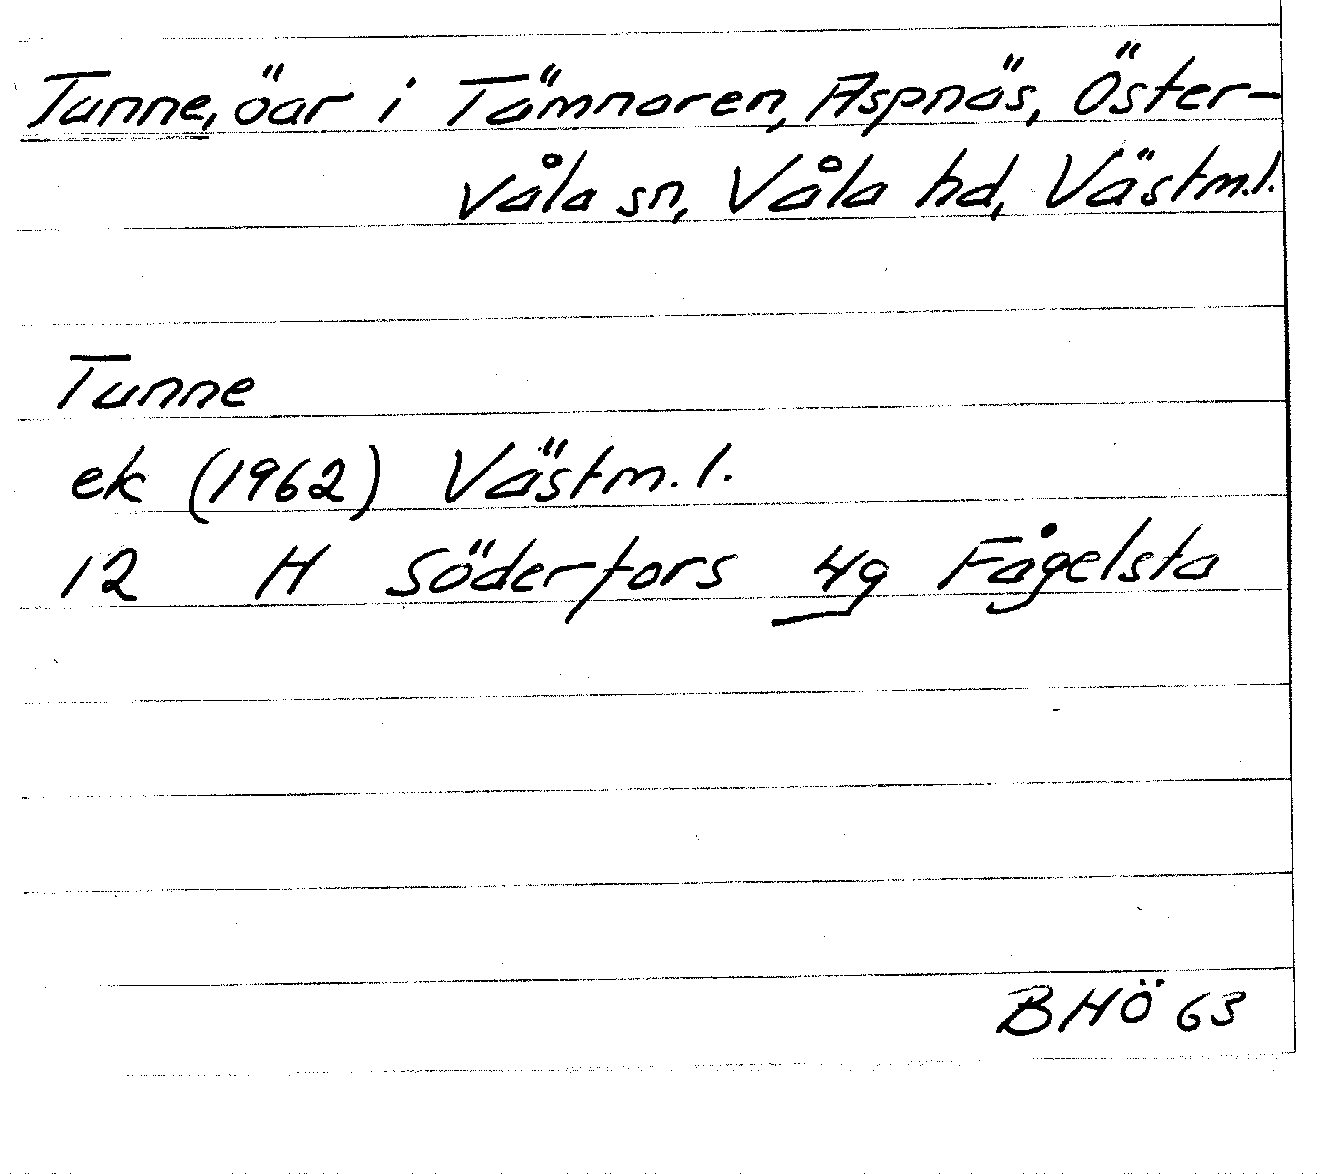 Tunne, öar i Tämnaren, Aspnäs, Öster-
våla sn, Våla hd, Västm.l.
Tunne
ek (1962) Västm. l.
12 H Söderfors 4g Fågelsta
BHÖ 63